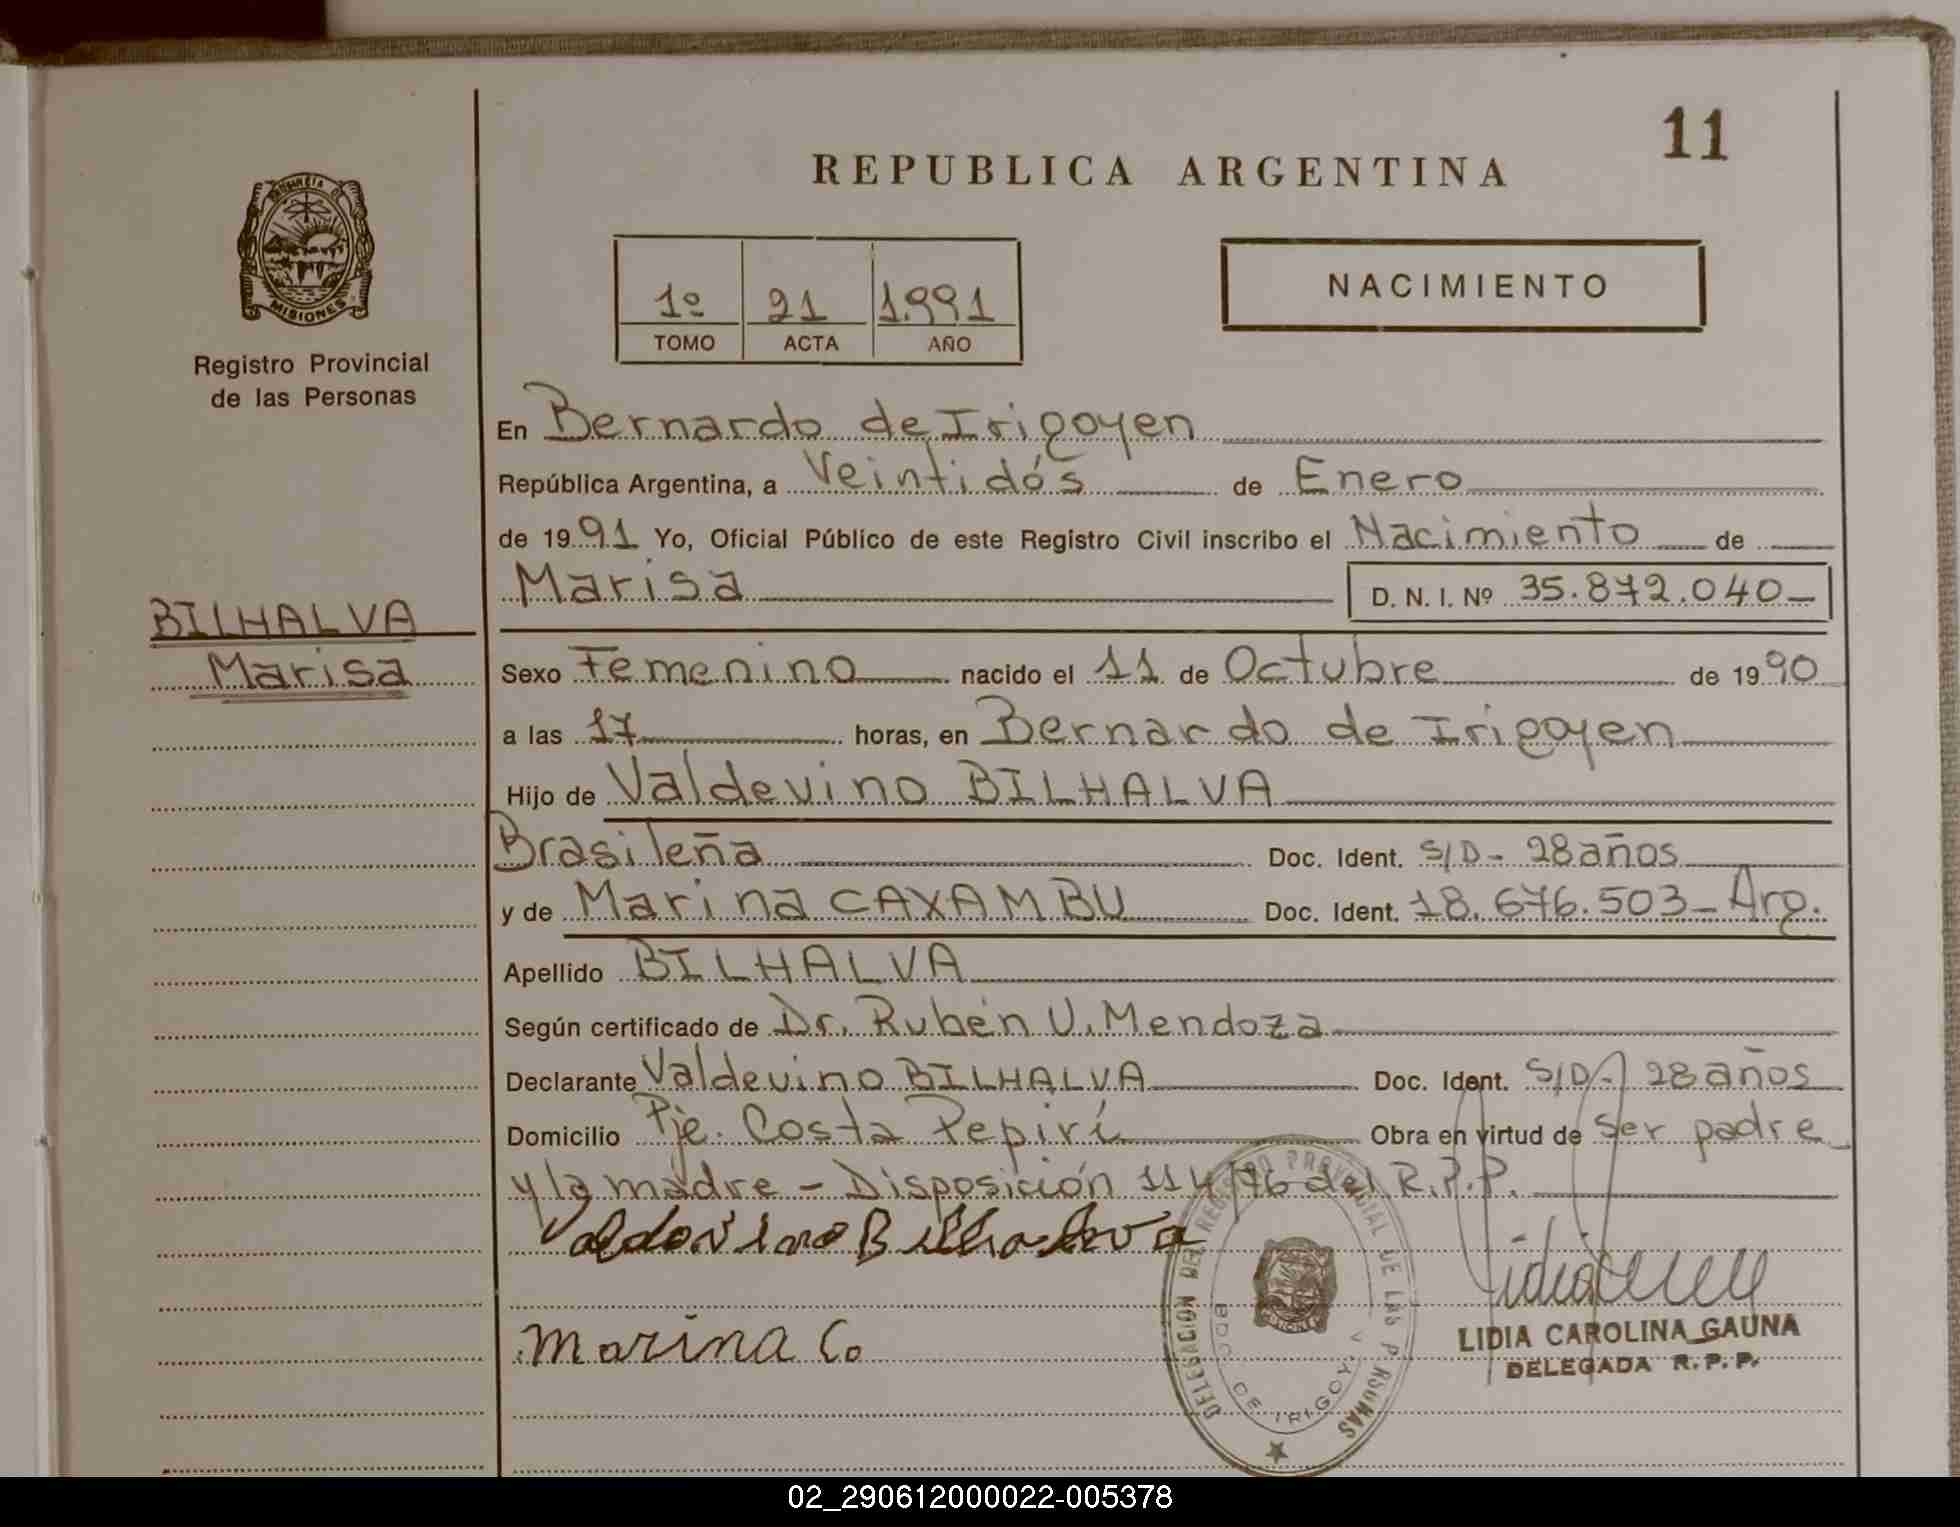 11
REPUBLICA ARGENTINA
PROVINCIA DE
MISIONES
Registro Provincial
de las Personas
1º 21 1.991
TOMO ACTA AÑO
NACIMIENTO
En Bernardo de Irigoyen
República Argentina, a Veintidós de Enero
de 1991 Yo, Oficial Público de este Registro Civil inscribo el Nacimiento de
Marisa D. N. I. Nº 35.872.040
BILHALVA
Marisa
Sexo Femenino nacido el 11 de Octubre de 1990
a las 17 horas, en Bernardo de Irigoyen
Hijo de Valdevino BILHALVA
Brasileña Doc. Ident. S/D - 28 años
y de Marina CAXAMBU Doc. Ident. 18.676.503 - Arg.
Apellido BILHALVA
Según certificado de Dr. Rubén U. Mendoza
Declarante Valdevino BILHALVA Doc. Ident. S/D - 28 años
Domicilio Pje. Costa Pepirí Obra en virtud de ser padre
y la madre - Disposición 114/76 del R.P.P.
Marina Co
LIDIA CAROLINA GAUNA
DELEGADA R.P.P.
DELEGACION DEL REGISTRO PROVINCIAL DE LAS PERSONAS
DE IRIGOY
02_290612000022-005378